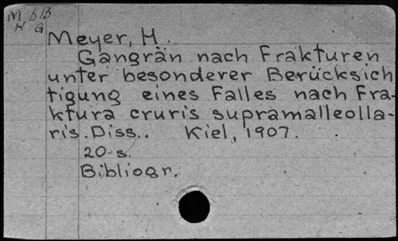 M. 61B
H G
Meyer, H.
Gangrän nach Frakturen
unter besonderer Berücksich
tigung eines Falles nach Fra-
ktura cruris supramalleolla-
ris. Diss. Kiel, 1907.
20 s.
Bibliogr.